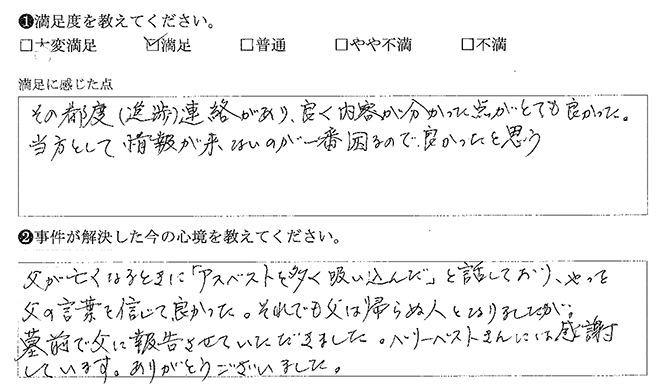 ❶満足度を教えてください。
□大変満足 ☑満足 □普通 □やや不満 □不満
満足に感じた点
その都度(進歩)連絡があり、良く内容が分かった点がとても良かった。
当方として情報が来ないのが一番困るので、良かったと思う
❷事件が解決した今の心境を教えてください。
父が亡くなるときに「アスベストを多く吸い込んだ」と話しており、やっと
父の言葉を信じて良かった。それでも父は帰らぬ人となりましたが、
墓前で父に報告させていただきました。ベリーベストさんには感謝
しています。ありがとうございました。